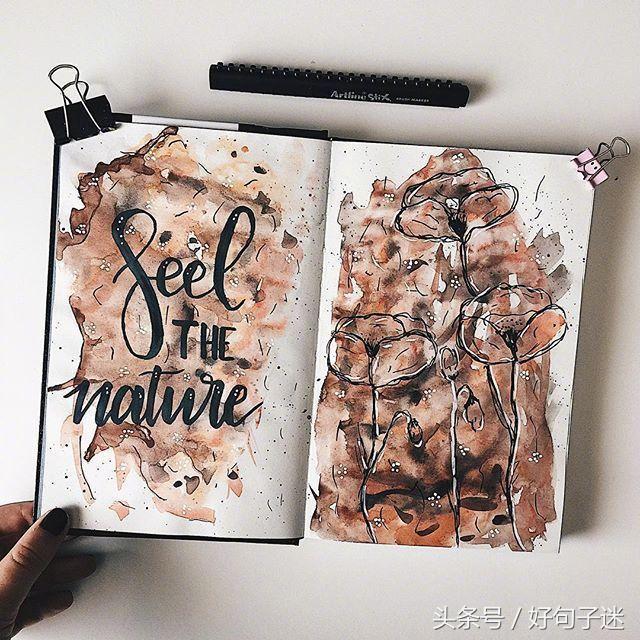 Artline Stix BRUSH MARKER
Seel
THE
nature
头条号 / 好句子迷